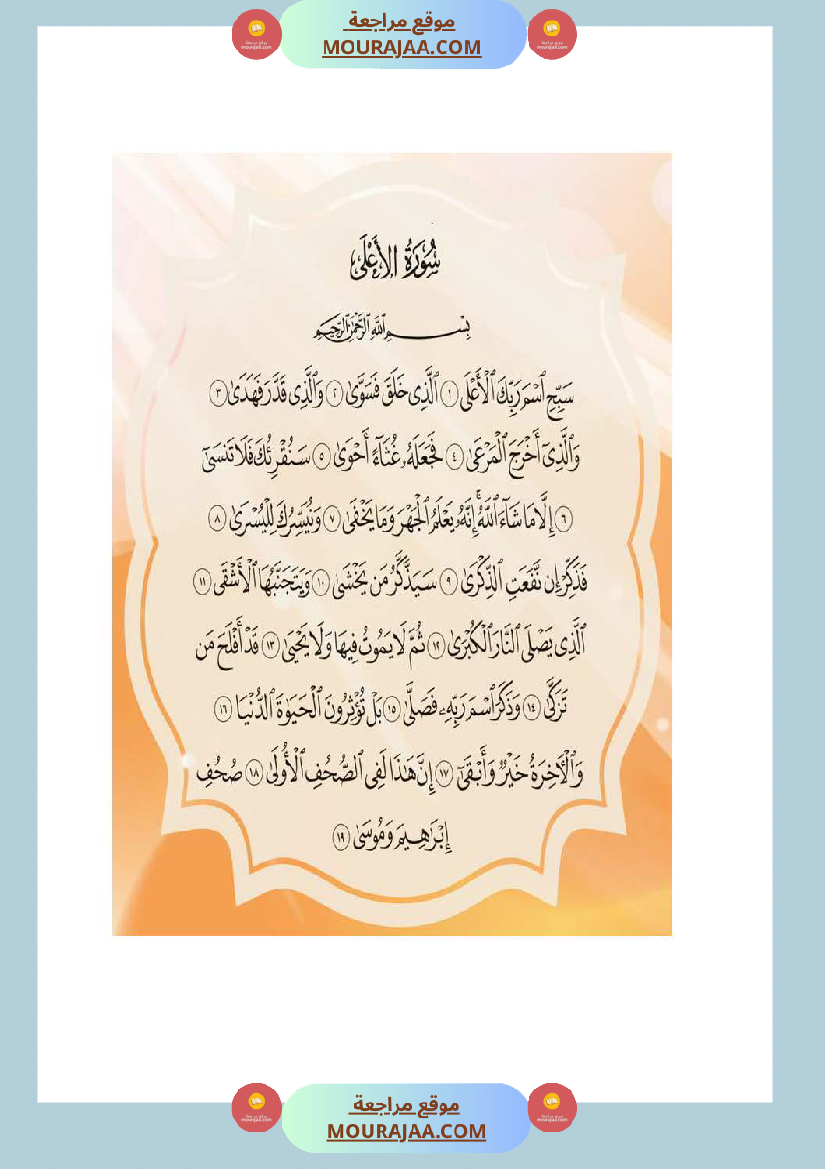 موقع مراجعة
MOURAJAA.COM
سُورَةُ الأَعْلَىٰ
بِسْمِ ٱللَّهِ ٱلرَّحْمَٰنِ ٱلرَّحِيمِ
سَبِّحِ ٱسْمَ رَبِّكَ ٱلْأَعْلَى ١ ٱلَّذِى خَلَقَ فَسَوَّىٰ ٢ وَٱلَّذِى قَدَّرَ فَهَدَىٰ ٣
وَٱلَّذِىٓ أَخْرَجَ ٱلْمَرْعَىٰ ٤ فَجَعَلَهُۥ غُثَآءً أَحْوَىٰ ٥ سَنُقْرِئُكَ فَلَا تَنسَىٰٓ
٦ إِلَّا مَا شَآءَ ٱللَّهُ ۚ إِنَّهُۥ يَعْلَمُ ٱلْجَهْرَ وَمَا يَخْفَىٰ ٧ وَنُيَسِّرُكَ لِلْيُسْرَىٰ ٨
فَذَكِّرْ إِن نَّفَعَتِ ٱلذِّكْرَىٰ ٩ سَيَذَّكَّرُ مَن يَخْشَىٰ ١٠ وَيَتَجَنَّبُهَا ٱلْأَشْقَى ١١
ٱلَّذِى يَصْلَى ٱلنَّارَ ٱلْكُبْرَىٰ ١٢ ثُمَّ لَا يَمُوتُ فِيهَا وَلَا يَحْيَىٰ ١٣ قَدْ أَفْلَحَ مَن
تَزَكَّىٰ ١٤ وَذَكَرَ ٱسْمَ رَبِّهِۦ فَصَلَّىٰ ١٥ بَلْ تُؤْثِرُونَ ٱلْحَيَوٰةَ ٱلدُّنْيَا ١٦
وَٱلْأٓخِرَةُ خَيْرٌ وَأَبْقَىٰٓ ١٧ إِنَّ هَٰذَا لَفِى ٱلصُّحُفِ ٱلْأُولَىٰ ١٨ صُحُفِ
إِبْرَٰهِيمَ وَمُوسَىٰ ١٩
موقع مراجعة
MOURAJAA.COM